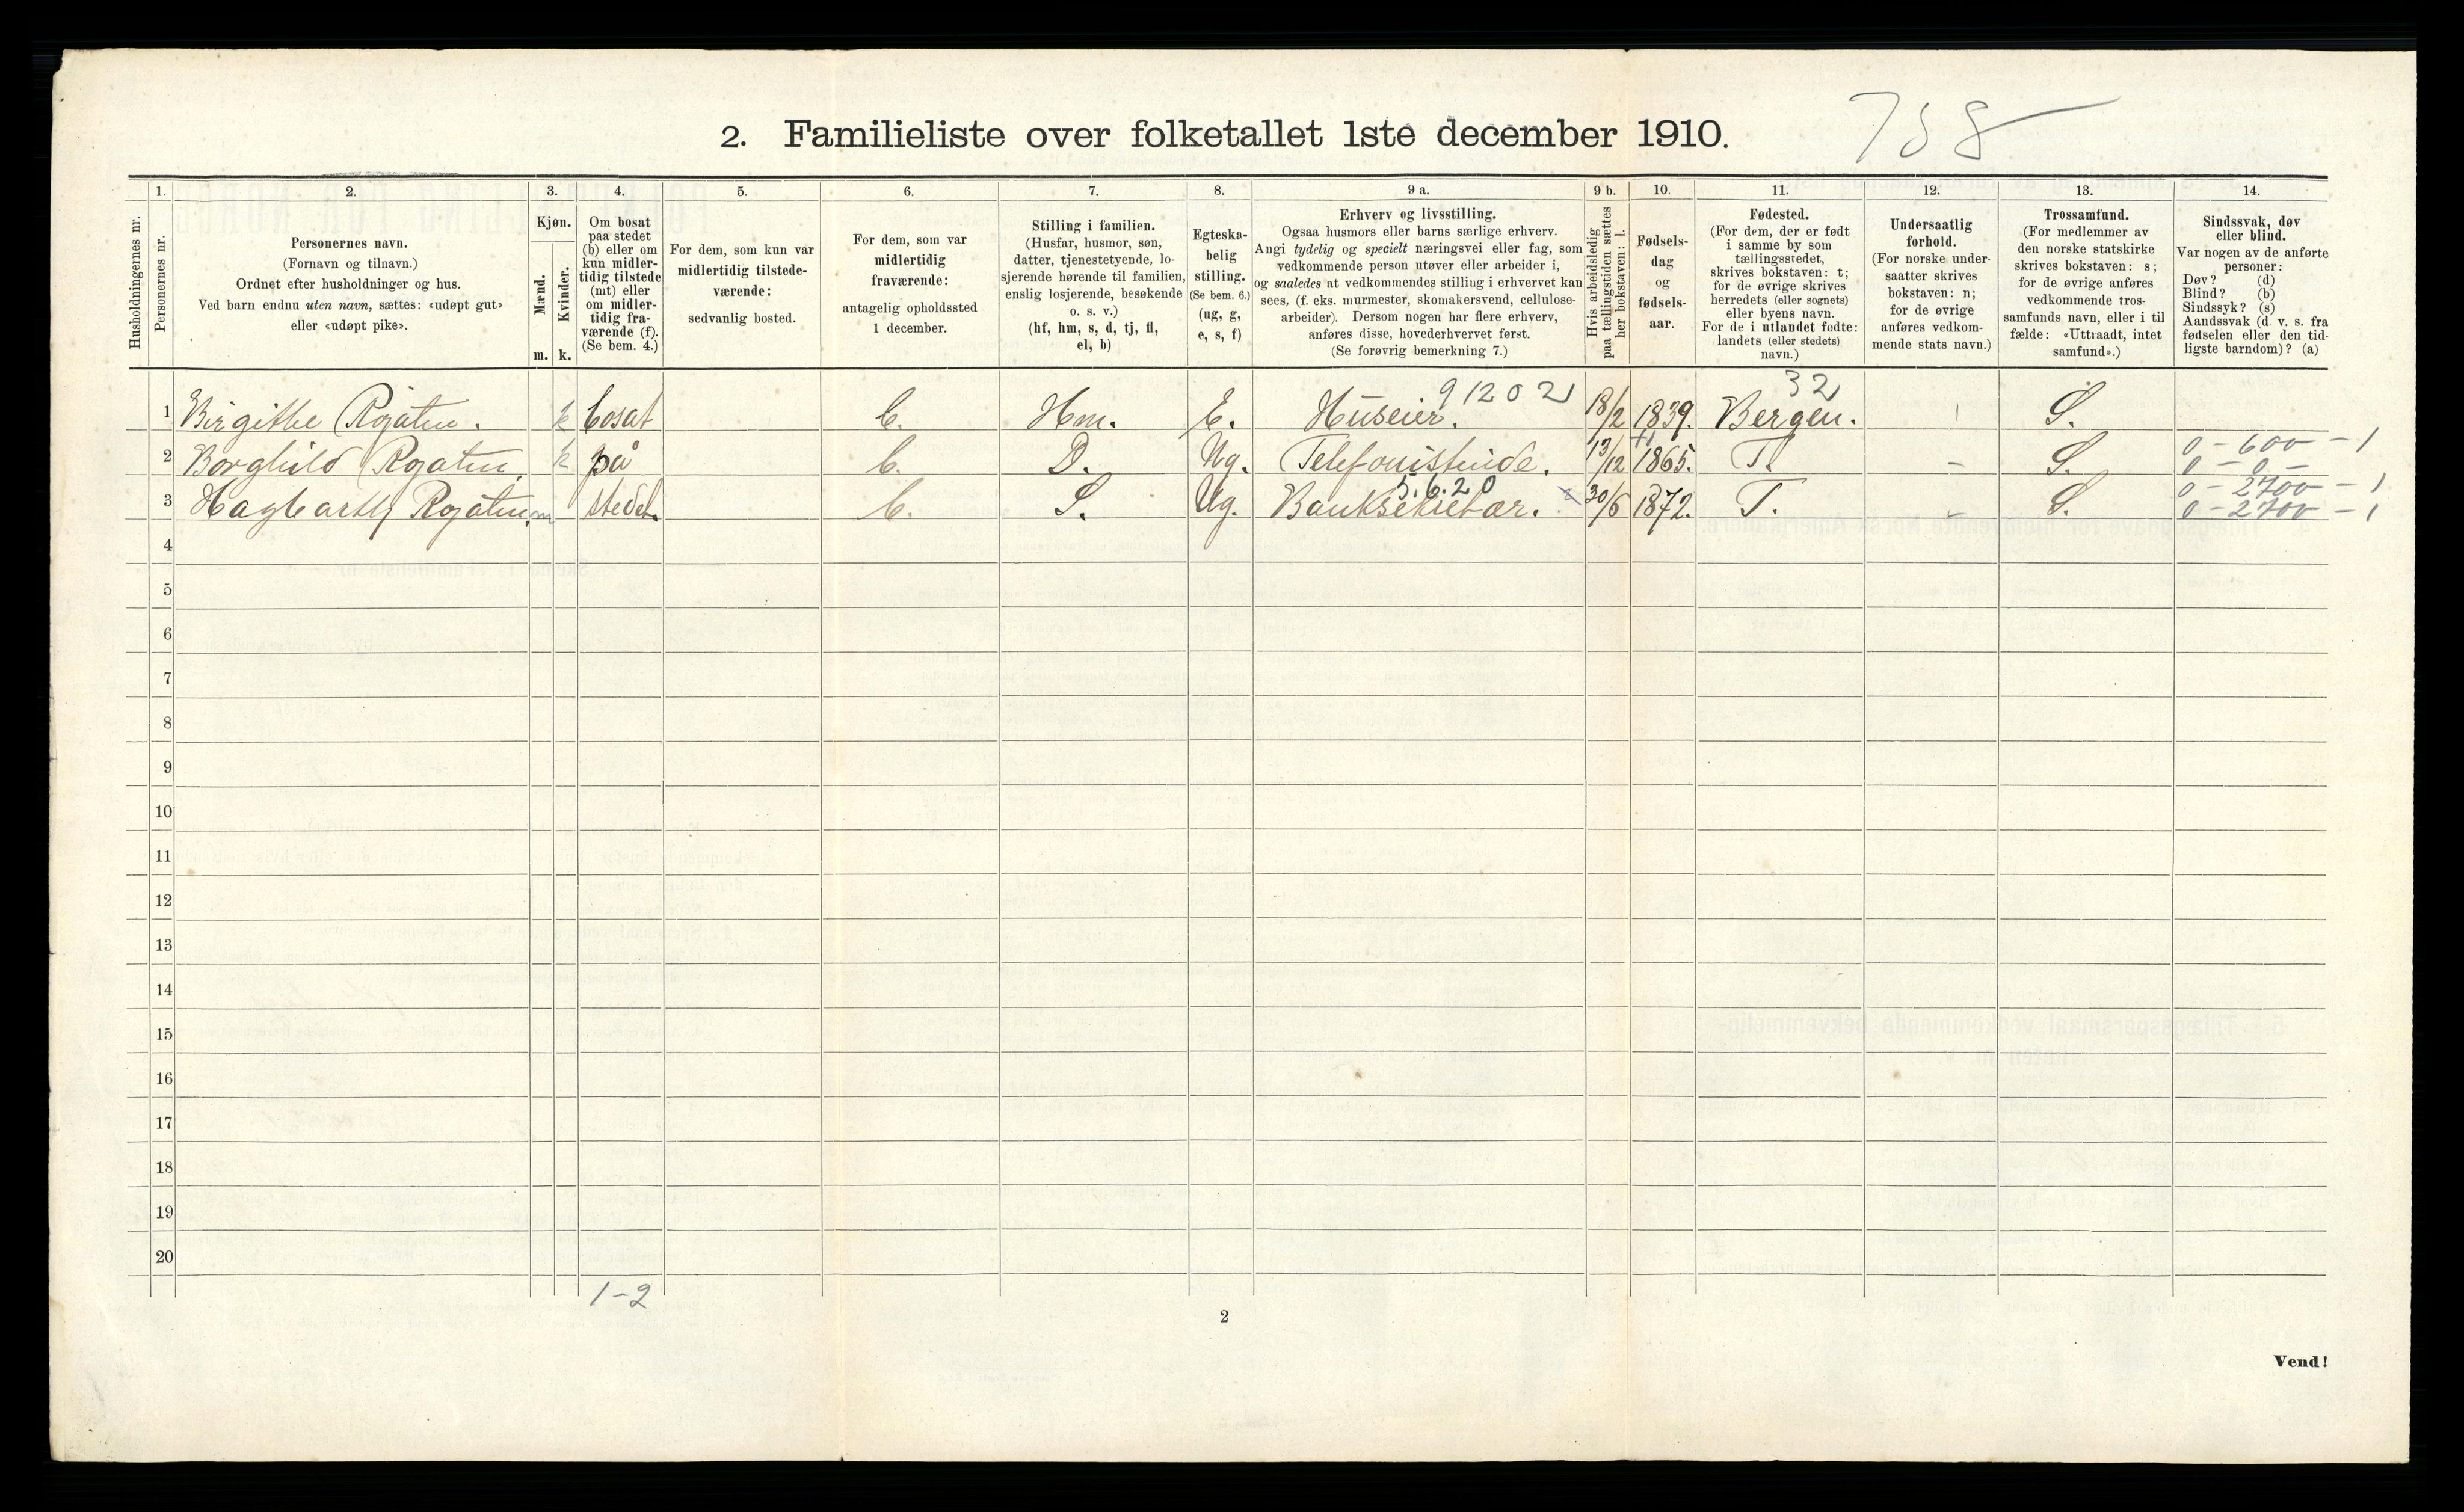 2. Familieliste over folketallet 1ste december 1910.
758
1. 2. 3. 4. 5. 6. 7. 8. 9 a. 9 b. 10. 11. 12. 13. 14.
Husholdningernes nr.
Personernes nr.
Personernes navn.
(Fornavn og tilnavn.)
Ordnet efter husholdninger og hus.
Ved barn endnu uten navn, sættes: «udøpt gut»
eller «udøpt pike».
Kjøn.
Mænd.
Kvinder.
m. k.
Om bosat
paa stedet
(b) eller om
kun midler-
tidig tilstede
(mt) eller
om midler-
tidig fra-
værende (f).
(Se bem. 4.)
For dem, som kun var
midlertidig tilstede-
værende:
sedvanlig bosted.
For dem, som var
midlertidig
fraværende:
antagelig opholdssted
1 december.
Stilling i familien.
(Husfar, husmor, søn,
datter, tjenestetyende, lo-
sjerende hørende til familien,
enslig losjerende, besøkende
o. s. v.)
(hf, hm, s, d, tj, fl,
el, b)
Egteska-
belig
stilling.
(Se bem. 6.)
(ug, g,
e, s, f)
Erhverv og livsstilling.
Ogsaa husmors eller barns særlige erhverv.
Angi tydelig og specielt næringsvei eller fag, som
vedkommende person utøver eller arbeider i,
og saaledes at vedkommendes stilling i erhvervet kan
sees, (f. eks. murmester, skomakersvend, cellulose-
arbeider). Dersom nogen har flere erhverv,
anføres disse, hovederhvervet først.
(Se forøvrig bemerkning 7.)
Hvis arbeidsledig
paa tællingstiden sættes
her bokstaven: l.
Fødsels-
dag
og
fødsels-
aar.
Fødested.
(For dem, der er født
i samme by som
tællingsstedet,
skrives bokstaven: t;
for de øvrige skrives
herredets (eller sognets)
eller byens navn.
For de i utlandet fødte:
landets (eller stedets)
navn.)
Undersaatlig
forhold.
(For norske under-
saatter skrives
bokstaven: n;
for de øvrige
anføres vedkom-
mende stats navn.)
Trossamfund.
(For medlemmer av
den norske statskirke
skrives bokstaven: s;
for de øvrige anføres
vedkommende tros-
samfunds navn, eller i til
fælde: «Uttraadt, intet
samfund».)
Sindssvak, døv
eller blind.
Var nogen av de anførte
personer:
Døv? (d)
Blind? (b)
Sindssyk? (s)
Aandssvak (d. v. s. fra
fødselen eller den tid-
ligste barndom)? (a)
91202 32
1 Birgithe Rojahn. k bosat Hm. E. Huseier. 18/2 1839. Bergen. S.
0 - 600 - 1
2 Borghild Rojahn. k på D. Ug. Telefonistinde. 13/12 1865. T. - S.
0 - 0 -
5.6.20 0 - 2700 - 1
3 Hagbarth Rojahn. m stedet. S. Ug. Banksekretær. 30/6 1872. T. - S. 0 - 2700 - 1
4
5
6
7
8
9
10
11
12
13
14
15
16
17
18
19
20
1-2
2
Vend!